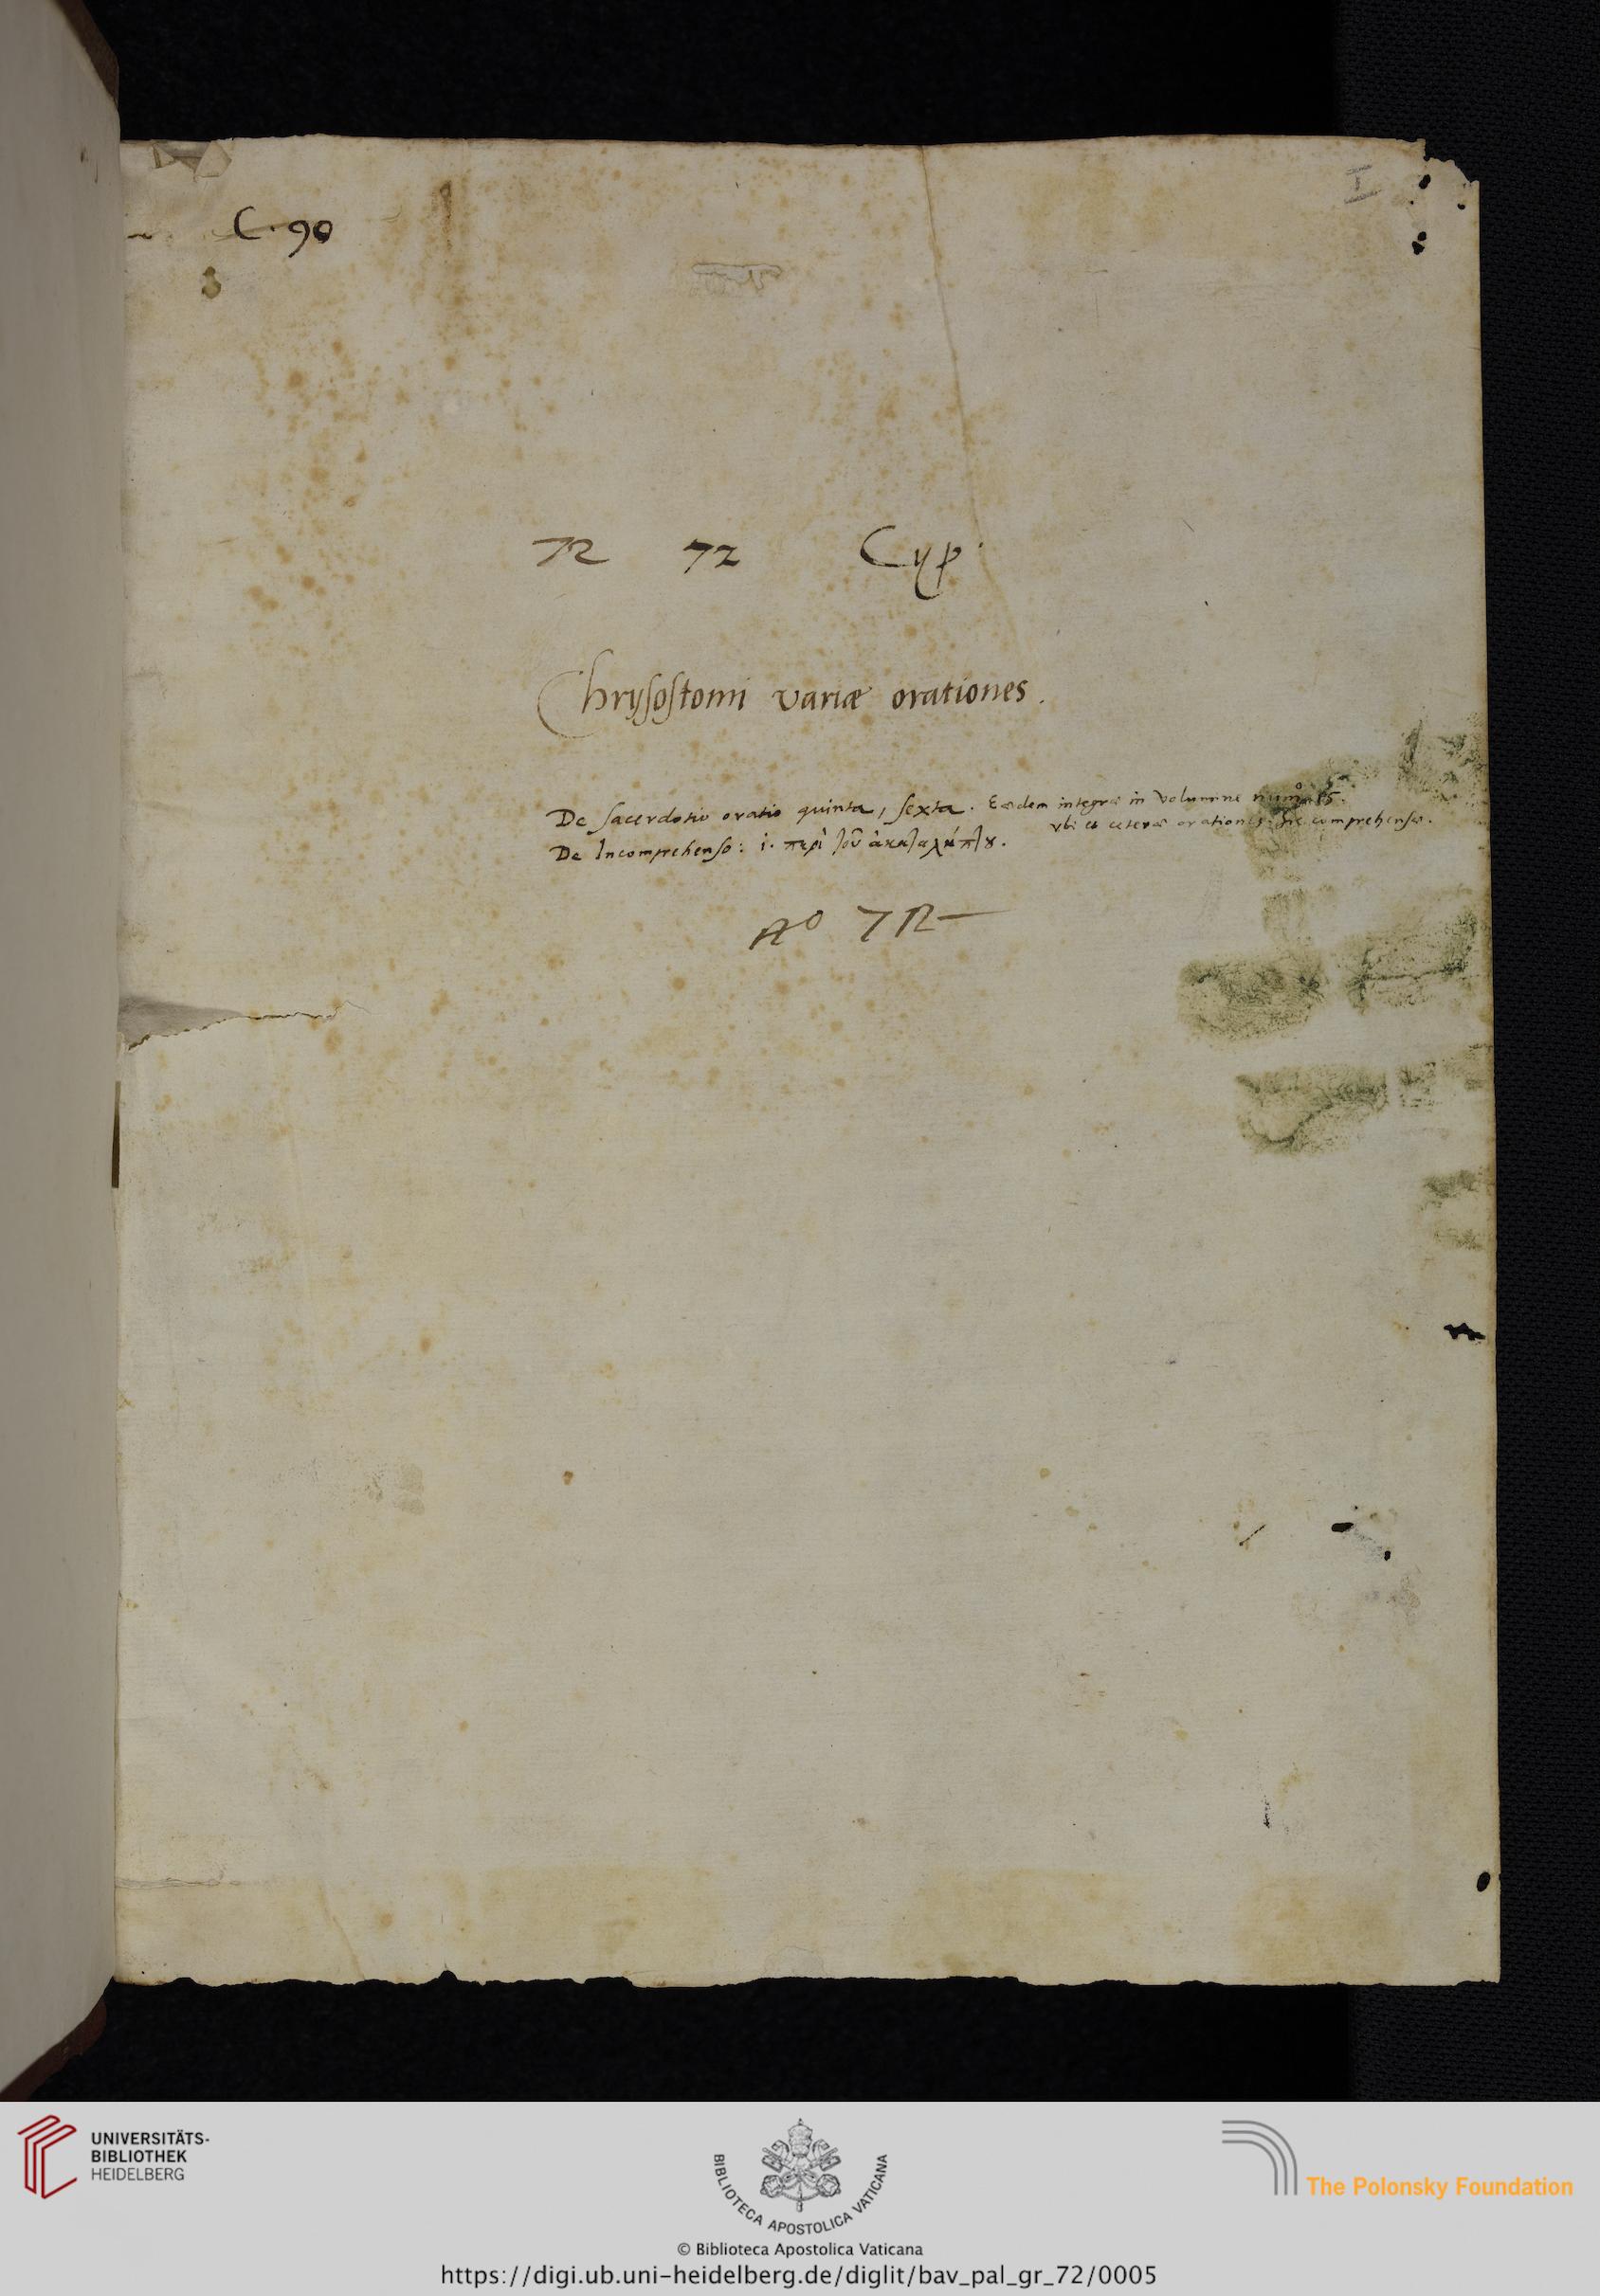 I
C. 90
72 72 Cyp.
Chrysostomi variæ orationes.
De Sacerdotio oratio quinta, sexta. Eædem integræ in volumine num° 15.
vbi et ceteræ orationes comprehensæ.
De Incomprehenso: i. περὶ τοῦ ἀκαταλήπτȣ.
N° 72
UNIVERSITÄTS-
BIBLIOTHEK
HEIDELBERG
BIBLIOTECA APOSTOLICA VATICANA
The Polonsky Foundation
© Biblioteca Apostolica Vaticana
https://digi.ub.uni-heidelberg.de/diglit/bav_pal_gr_72/0005